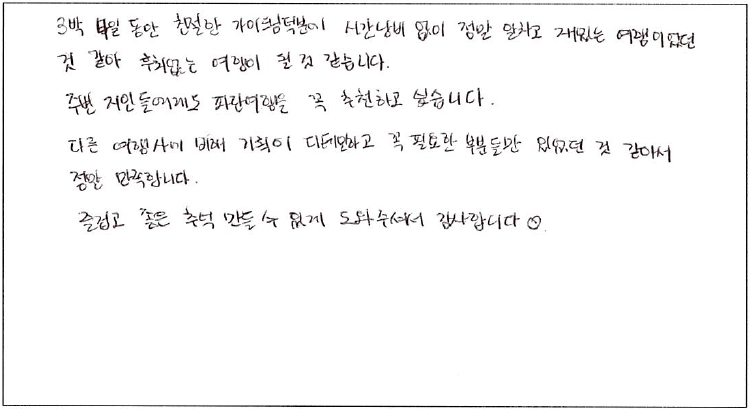 3박 4일 동안 친절한 가이드님덕분에 시간낭비 없이 정말 알차고 재밌는 여행이었던
것 같아 후회없는 여행이 될 것 같습니다.
주변 지인들에게도 파란여행을 꼭 추천하고 싶습니다.
다른 여행사에 비해 기획이 디테일하고 꼭 필요한 부분들만 있었던 것 같아서
정말 만족합니다.
즐겁고 좋은 추억 만들 수 있게 도와주셔서 감사합니다 ☺.